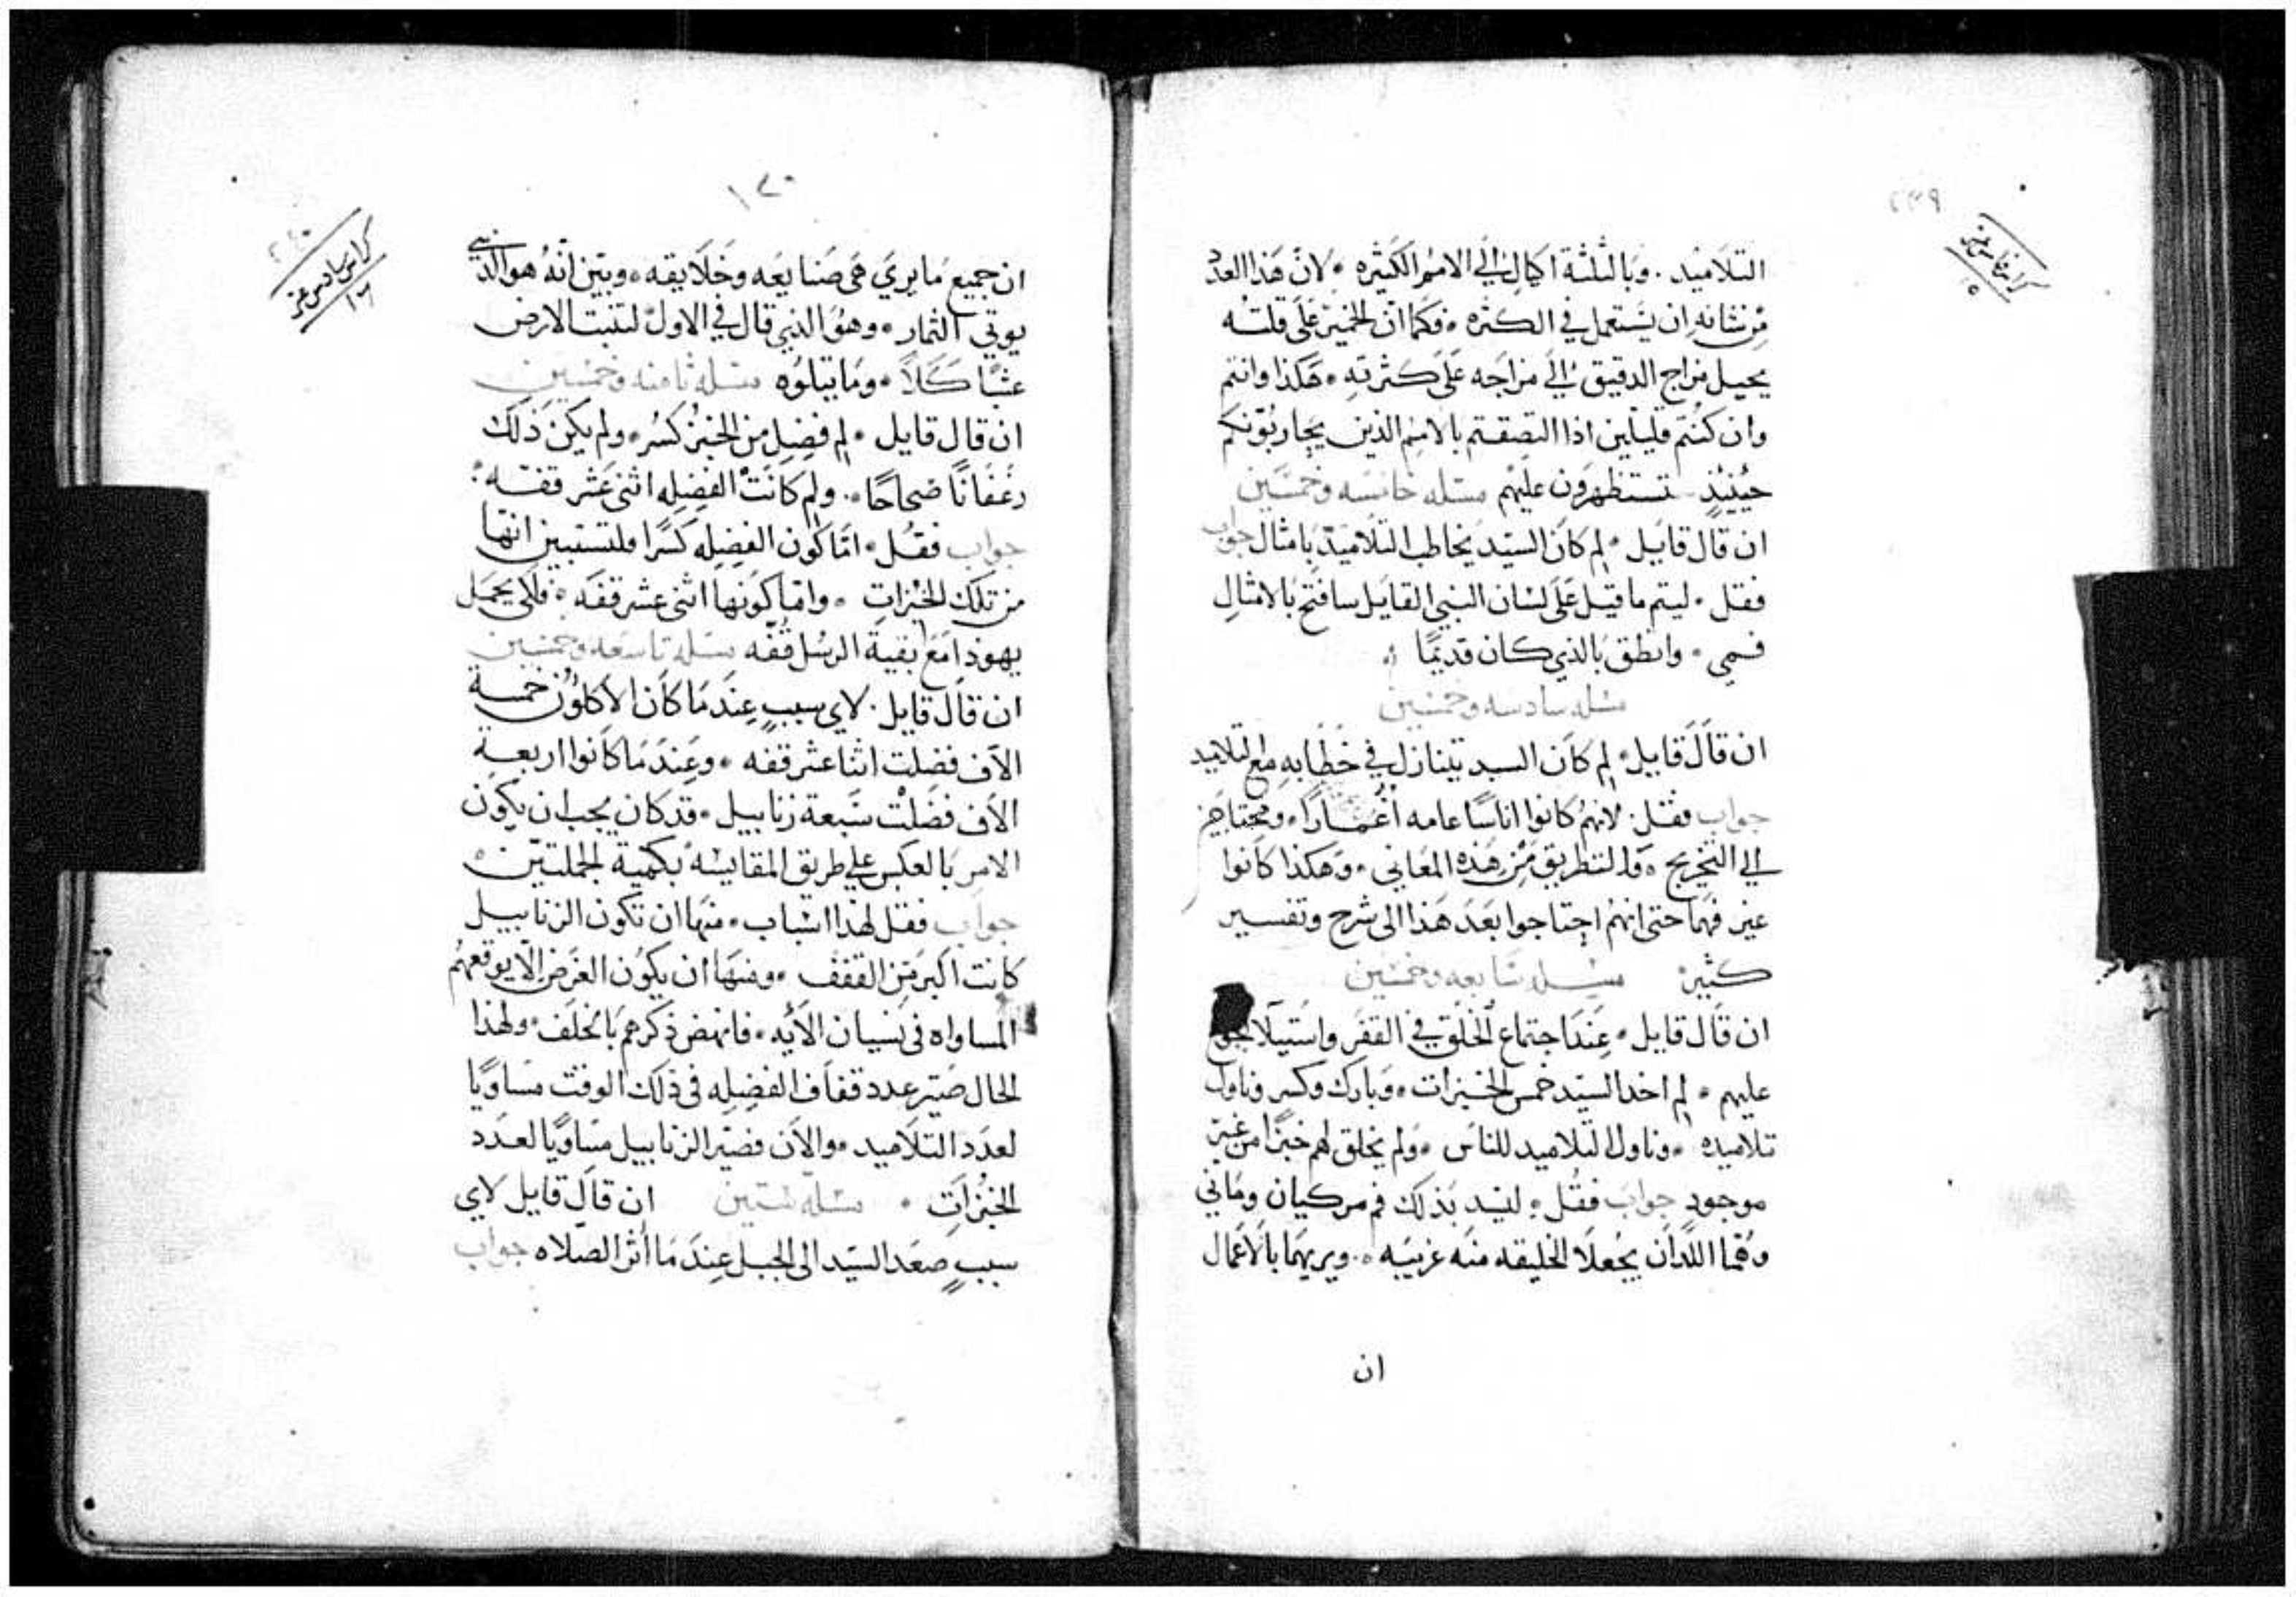 ٢٣٩
كراس خامس عشر
١٥
التلاميد . وبالثلثة اكيال الي الامم الكثيره . لان هذا العدد
من شانه ان يستعمل في الكثره . فكما ان الخمير على قلته
يحيل مزاج الدقيق الي مزاجه على كثرته . هكذا وانتم
وان كنتم قليلين اذا التصقتم بالامم الذين يحاربونكم
حينيذ تستظهرون عليهم مسله خامسه وخمسين
ان قال قايل . لم كان السيد يخاطب التلاميد بامثال جواب
فقل . ليتم ما قيل على لسان النبي القايل سافتح بالامثال
فمي . وانطق بالذي كان قديمًا
مسله سادسه وخمسين
ان قال قايل . لم كان السيد يتنازل في خطابه مع التلاميد
جواب فقل . لانهم كانوا اناسًا عامه أغمارًا . ومحتاجين
الي التخريج . والتطريق من هذه المعاني . وهكذا كانوا
غير فهما حتى انهم احتاجوا بعد هذا الى شرح وتفسير
كثير مسله سابعه وخمسين
ان قال قايل . عند اجتماع الخلق في القفر واستيلا الجوع
عليهم . لم اخد السيد خمس الخبزات . وبارك وكسر وناول
تلاميده . وناول التلاميد للناس . ولم يخلق لهم خبزًا من غير
موجود جواب فقل . ليسد بذلك فم مركيان وماني
وهما اللدان يجعلا الخليقه منه غريبه . ويريهما بالاعمال
ان
١٢٠
٢٤٠
كراس سادس عشر
١٦
ان جميع ما يري هي صنايعه وخلايقه . وبين انه هو الذي
يوتي الثمار . وهو الذي قال في الاول لتنبت الارض
عشبًا كلاً . وما يتلوه مسله ثامنه وخمسين
ان قال قايل . لم فضل من الخبز كسر . ولم يكن ذلك
رغفانًا صحاحًا . ولم كانت الفضله اثنى عشر قفه .
جواب فقل . امّا كون الفضله كسرًا فلتستبين انها
من تلك الخبزات . وامّا كونها اثنى عشر قفه . فلكي يحمل
يهوذا مع بقية الرسل قفّه مسله تاسعه وخمسين
ان قال قايل . لاي سببٍ عند ما كان الاكلون خمسة
الاف فضلت اثنا عشر قفه . وعند ما كانوا اربعة
الاف فضلت سبعة زنابيل . قد كان يجب ان يكون
الامر بالعكس على طريق المقايسه بكمية الجملتين .
جواب فقل لهذا اسباب . منها ان تكون الزنابيل
كانت اكبر من القفف . ومنها ان يكون الغرض الّا يوقعهم
المساواه في نسيان الايه . فانهض ذكرهم بالخلف . ولهذا
الحال صيّر عدد قفاف الفضله في ذلك الوقت مساويًا
لعدد التلاميد . والان فصيّر الزنابيل مساويًا لعدد
الخبزات . مسلة ستين ان قال قايل لاي
سببٍ صعد السيد الى الجبل عند ما اثر الصلاه جواب